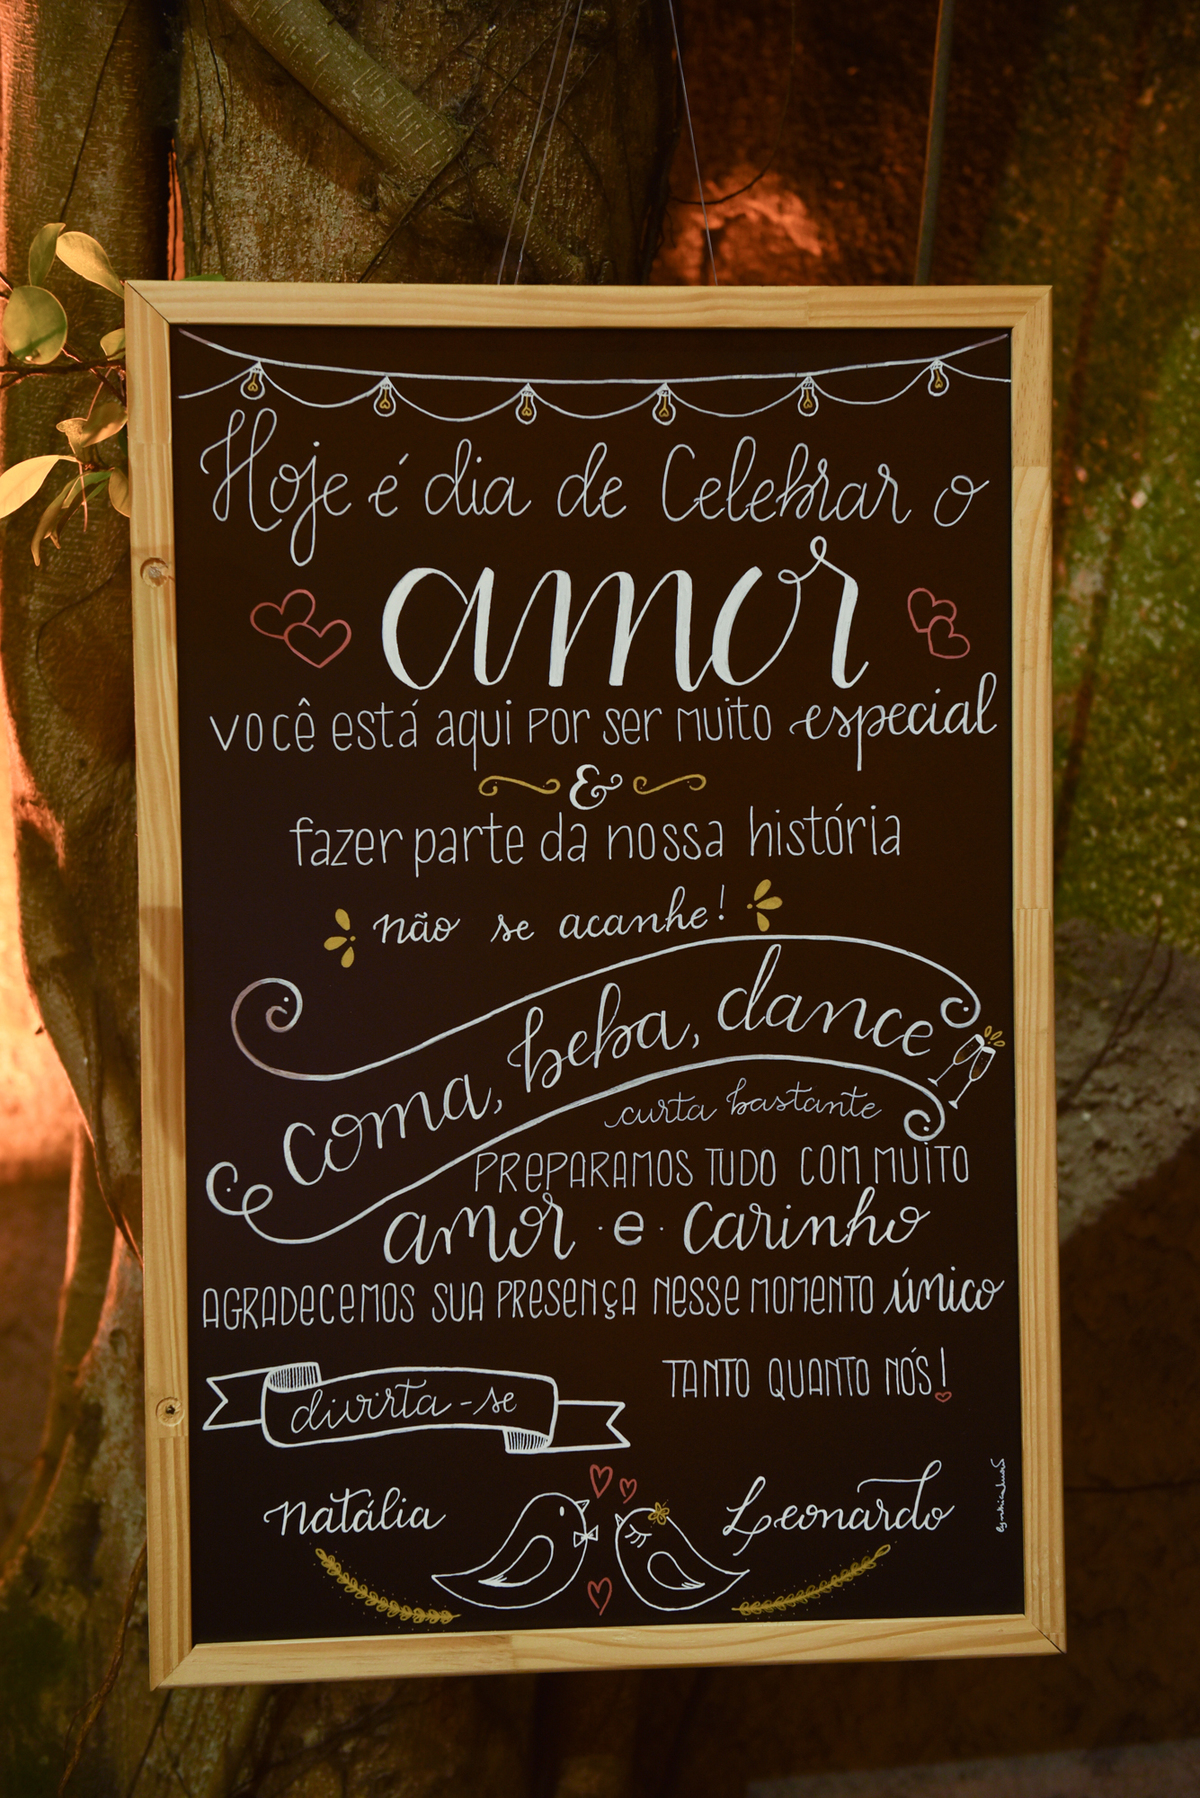 Hoje é dia de Celebrar o
amor
você está aqui por ser muito especial
&
fazer parte da nossa história
não se acanhe!
coma, beba, dance
curta bastante
PREPARAMOS TUDO COM MUITO
amor · e · carinho
AGRADECEMOS SUA PRESENÇA NESSE MOMENTO único
TANTO QUANTO NÓS!
divirta-se
natália
Leonardo